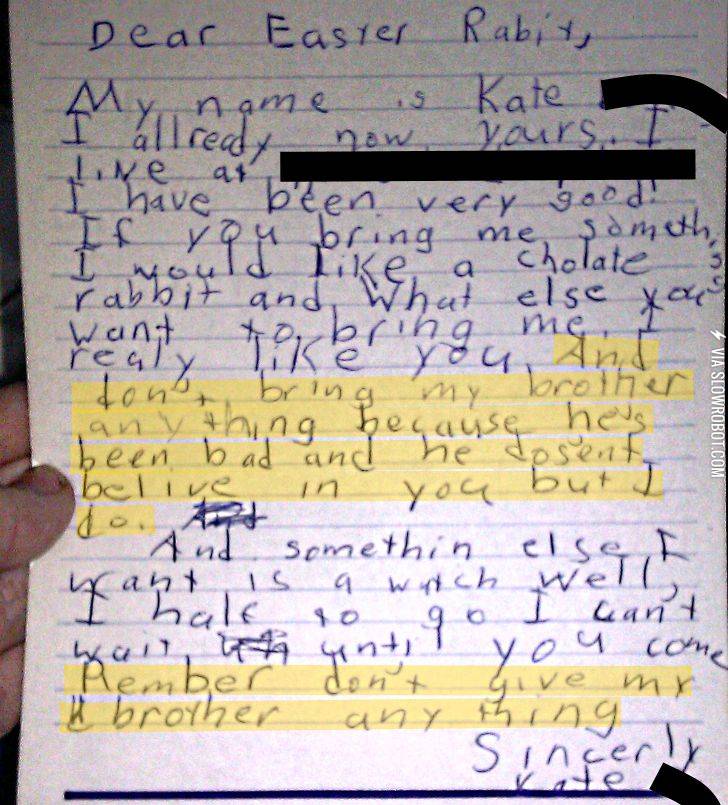 Dear Easter Rabit,
My name is Kate
I allready now yours. I
live at
I have been very good!
If you bring me someth
I would like a cholate
rabbit and What else you
want to bring me. I
realy like you. And
don't bring my brother
any thing because he's
been bad and he dosent
belive in you but I
do.
And somethin else I
want is a watch well,
I half to go I can't
wait until you come
Rember don't give my
brother any thing
Sincerly
Kate
VIA SLOWROBOT.COM